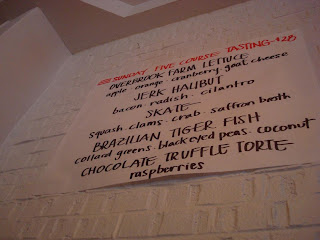 SUNDAY FIVE COURSE TASTING-$28
OVERBROOK FARM LETTUCE
apple · orange · cranberry · goat cheese
JERK HALIBUT
bacon · radish · cilantro
SKATE
squash · clams · crab · saffron broth
BRAZILIAN TIGER FISH
collard greens · black eyed peas · coconut
CHOCOLATE TRUFFLE TORTE
raspberries